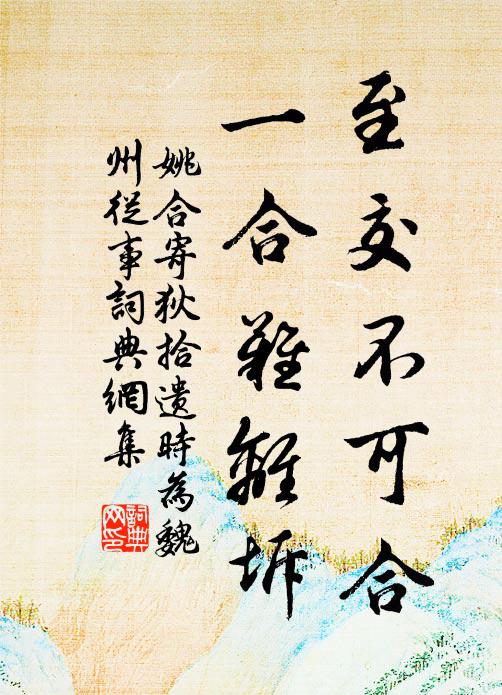 至交不可合
一合難離坼
姚合寄狄拾遺時為魏
州從事詞典網集
詞典
网印